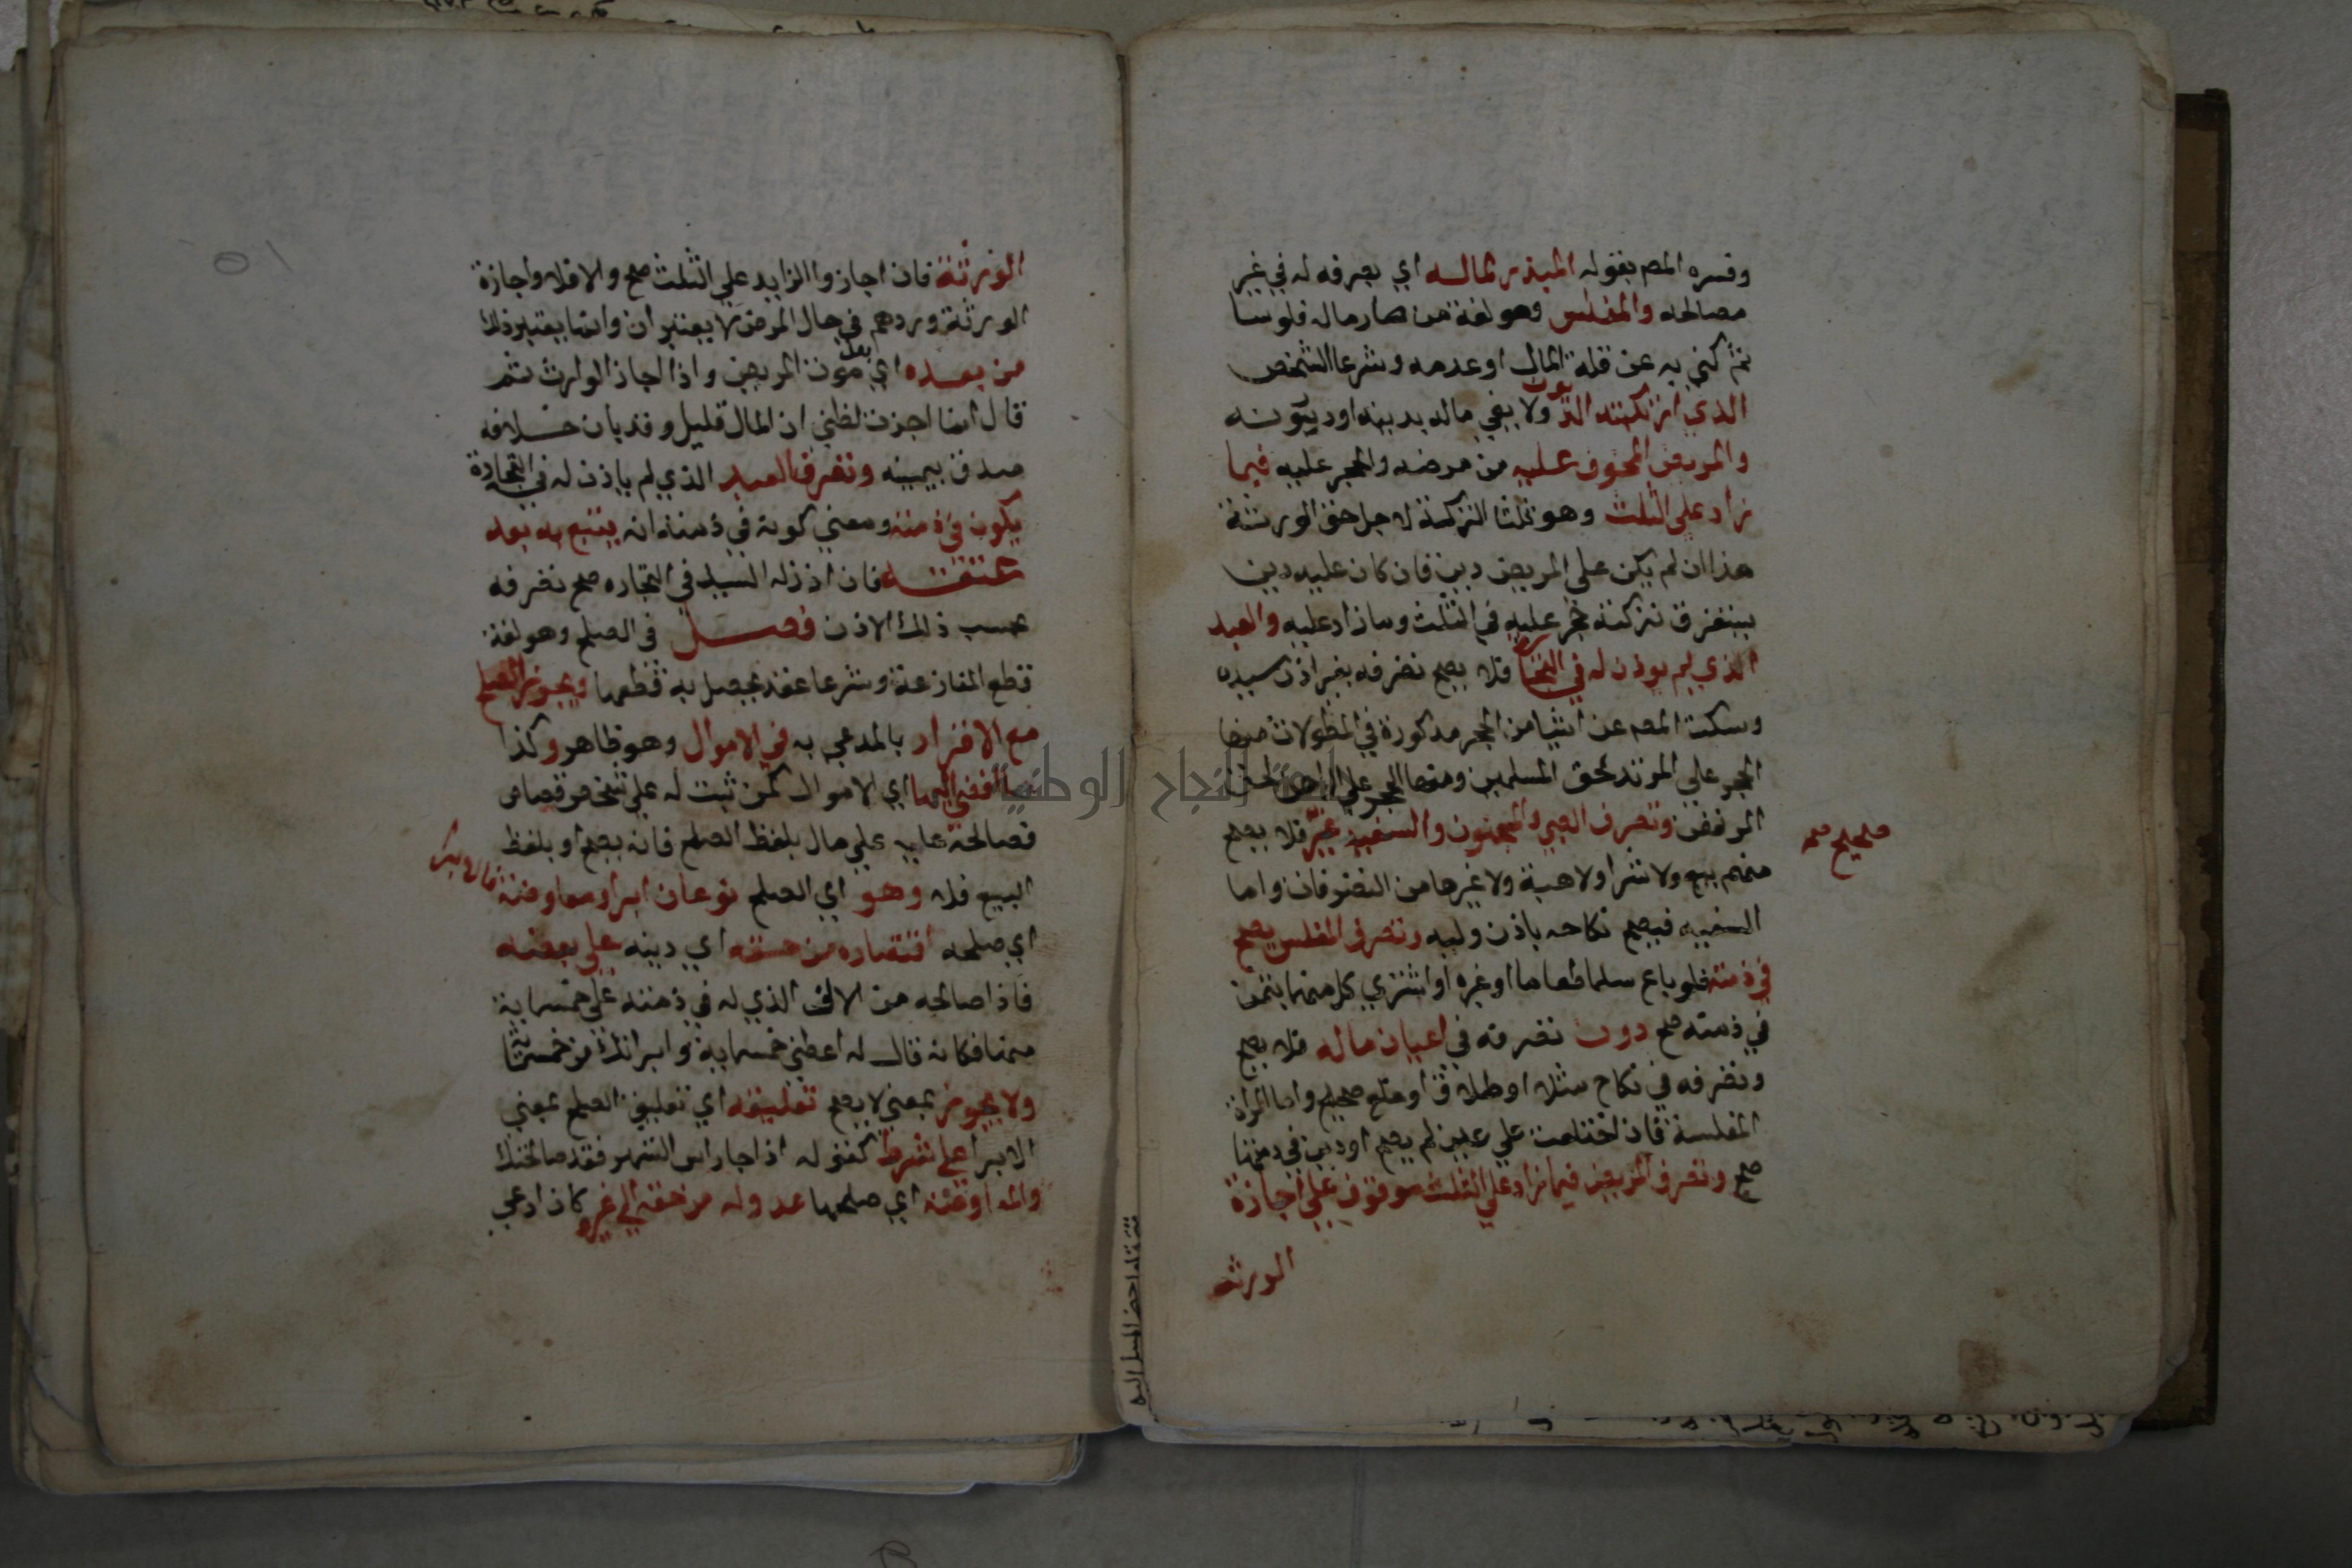 وفسره المص بقوله المبذر لماله اي بصرفه له في غير
مصالحه والمفلس وهو لغة من صار ماله فلوسا
ثم كني به عن قلة المال او عدمه وشرعا الشخص
الذي ارتكبته الديون ولا يفي ماله بدينه او ديونه
والمريض المخوف عليه من مرضه والحجر عليه فيما
زاد علي الثلث وهو ثلثا التركة لاجل حق الورثة
هذا ان لم يكن علي المريض دين فان كان عليه دين
يستغرق تركته حجر عليه في الثلث وما زاد عليه والعبد
الذي لم يوذن له في التجارة فلا يصح تصرفه بغير اذن سيده
وسكت المص عن اشيا من الحجر مذكورة في المطولات منها
الحجر علي المرتد لحق المسلمين ومنها الحجر علي الراهن لحق
المرتهن وتصرف الصبي والمجنون والسفيه غير فلا يصح
صحيح صح
منهم بيع ولا شرا ولا هبة ولا غيرها من التصرفات واما
السفيه فيصح نكاحه باذن وليه وتصرف المفلس يصح
في ذمته فلو باع سلما طعاما او غيره او اشتري كل منهما بثمن
في ذمته صح دون تصرفه في اعيان ماله فلا يصح
وتصرفه في نكاح مثلا او طلاق او خلع صحيح واما المراة
المفلسة فان اختلعت علي عين لم يصح او دين في ذمتها
صح وتصرف المريض فيما زاد علي الثلث موقوف علي اجازة
الورثة
الورثة فان اجازوا الزايد علي الثلث صح والا فلا واجازة
الورثة وردهم في حال المرض لا يعتبران وانما يعتبر ذلك
من بعده اي بعد موت المريض واذا اجاز الوارث ثم
قال انما اجزت لظني ان المال قليل وقد بان خلافه
صدق بيمينه وتصرف العبد الذي لم ياذن له في التجارة
يكون في ذمته ومعني كونه في ذمته انه يتبع به بعد
عتقه فان اذن له السيد في التجاره صح تصرفه
بحسب ذلك الاذن فصل في الصلح وهو لغة
قطع المنازعة وشرعا عقد يحصل به قطعها ويجوز الصلح
مع الاقرار بالمدعي به في الاموال وهو ظاهر وكذا
ما افضي اليها اي الاموال كمن ثبت له علي شخص قصاص
فصالحه عليه علي مال بلفظ الصلح فانه يصح او بلفظ
البيع فلا وهو اي الصلح نوعان ابرا ومعاوضة
اي صلحه اقتصاره من حقه اي دينه علي بعضه
فاذا صالحه من الالف الذي له في ذمته علي خمسماية
منها فكانه قال له اعطني خمسماية وابراتك من خمسماية
ولا يجوز بمعني لا يصح تعليقه اي تعليق الصلح بمعني
الابرا علي شرط كقوله اذا جا راس الشهر فقد صالحتك
والمعاوضة اي صلحها عدوله من حقه الي غيره كان ادعي
جامعة النجاح الوطنية